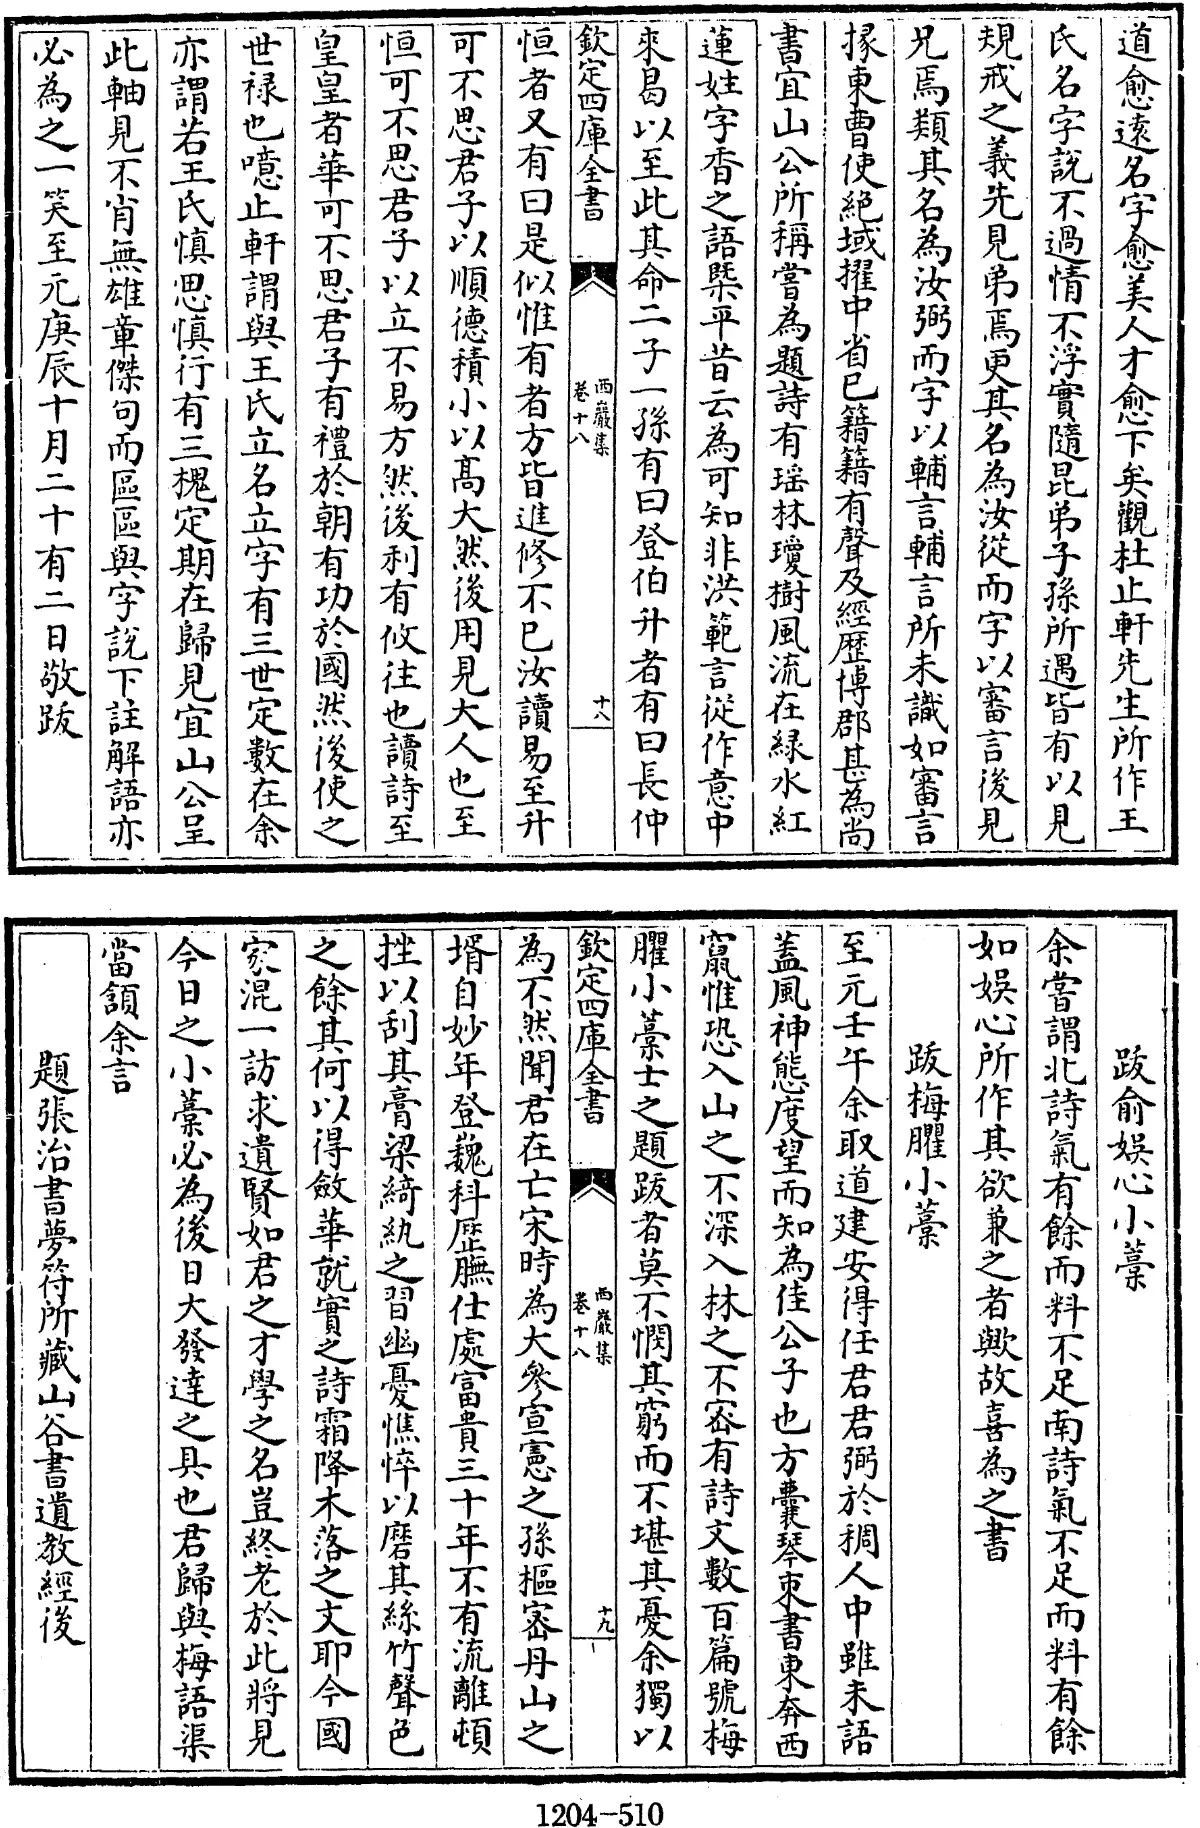 道愈遠名字愈美人才愈下矣觀杜止軒先生所作王
氏名字說不過情不浮實隨昆弟子孫所遇皆有以見
規戒之義先見弟焉更其名為汝從而字以審言後見
兄焉類其名為汝弼而字以輔言輔言所未識如審言
掾東曹使絕域擢中省已籍籍有聲及經歷博郡甚為尚
書宜山公所稱嘗為題詩有瑶林瓊樹風流在綠水紅
蓮姓字香之語槩平昔云為可知非洪範言從作意中
來曷以至此其命二子一孫有曰登伯升者有曰長仲
欽定四庫全書
西巖集
卷十八
十八
恒者又有曰是似惟有者方皆進修不已汝讀易至升
可不思君子以順德積小以高大然後用見大人也至
恒可不思君子以立不易方然後利有攸往也讀詩至
皇皇者華可不思君子有禮於朝有功於國然後使之
世祿也噫止軒謂與王氏立名立字有三世定數在余
亦謂若王氏慎思慎行有三槐定期在歸見宜山公呈
此軸見不肖無雄章傑句而區區與字說下註解語亦
必為之一笑至元庚辰十月二十有二日敬跋
跋俞娛心小藁
余嘗謂北詩氣有餘而料不足南詩氣不足而料有餘
如娛心所作其欲兼之者歟故喜為之書
跋梅臞小藁
至元壬午余取道建安得任君君弼於稠人中雖未語
蓋風神態度望而知為佳公子也方囊琴束書東奔西
竄惟恐入山之不深入林之不密有詩文數百篇號梅
臞小藁士之題跋者莫不憫其窮而不堪其憂余獨以
欽定四庫全書
西巖集
卷十八
十九
為不然聞君在亡宋時為大參宣憲之孫樞密丹山之
壻自妙年登巍科歷膴仕處富貴三十年不有流離頓
挫以刮其膏粱綺紈之習幽憂憔悴以磨其絲竹聲色
之餘其何以得斂華就實之詩霜降木落之文耶今國
家混一訪求遺賢如君之才學之名豈終老於此將見
今日之小藁必為後日大發達之具也君歸與梅語渠
當頷余言
題張治書夢符所藏山谷書遺教經後
1204-510